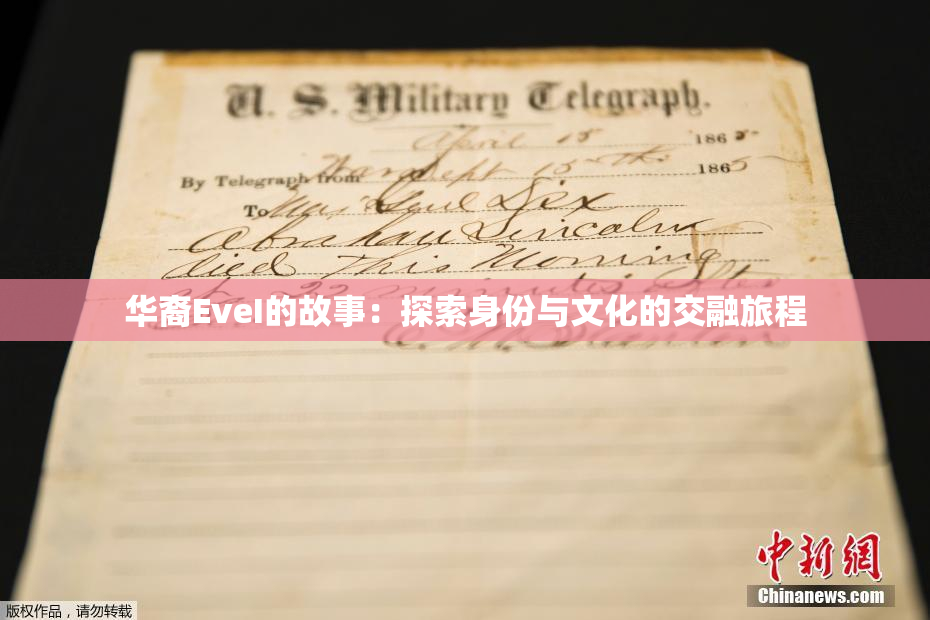 U. S. Military Telegraph.
April 15 1865
By Telegraph from War Dept 15th 1865
To Maj Genl Dix
Abraham Lincoln
died This Morning
at 22 minutes after
华裔EveI的故事：探索身份与文化的交融旅程
E. M. Stanton
中新网
Chinanews.com
版权作品，请勿转载